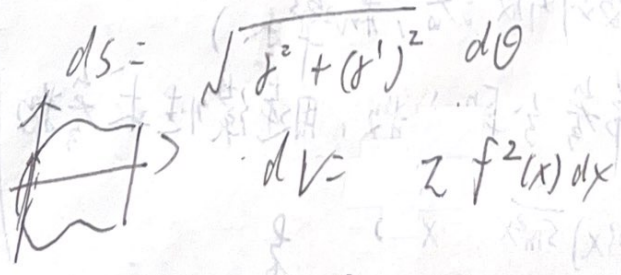 ds= √r²+(r')² dθ
dV= π f²(x)dx